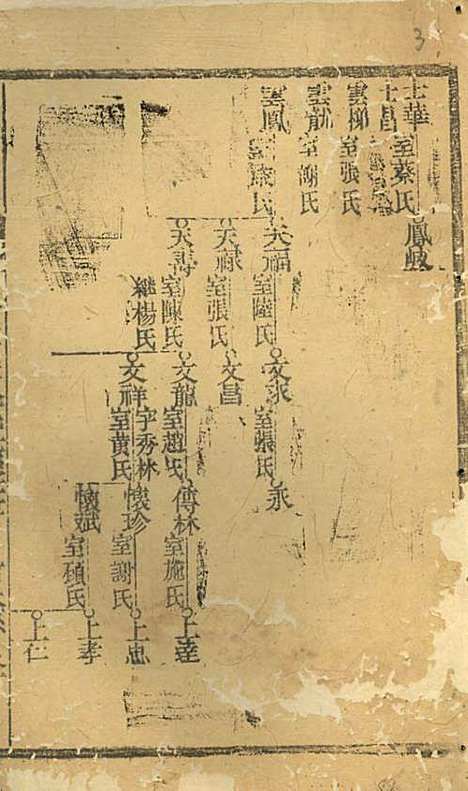 3
士華 室蔡氏 鳳岐
士昌
雲梯 室張氏
雲龍 室謝氏
雲鳳 室 氏
天福 室陸氏 文 室張氏 永
天祿 室張氏 文昌
天壽 室陳氏 文龍 室趙氏 傳林 室施氏 上達
継楊氏 文祥 字秀林 懷珍 室謝氏 上忠
室黄氏
懷斌 室 氏 上孝
上仁